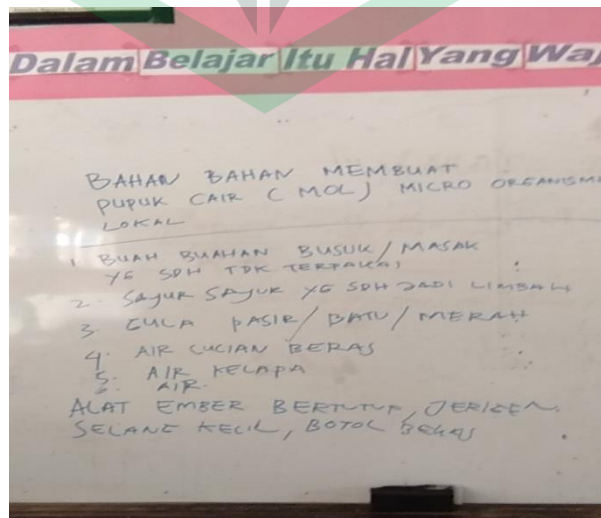 Dalam Belajar Itu Hal Yang Waj
BAHAN BAHAN MEMBUAT
PUPUK CAIR ( MOL) MICRO ORGANISME
LOKAL
1. BUAH BUAHAN BUSUK/MASAK
YG SDH TDK TERPAKAI
2. SAYUR SAYUR YG SDH JADI LIMBAH
3. GULA PASIR/BATU/MERAH
4. AIR CUCIAN BERAS
5. AIR KELAPA
6. AIR.
ALAT EMBER BERTUTUP, JERIGEN
SELANG KECIL, BOTOL BEKAS